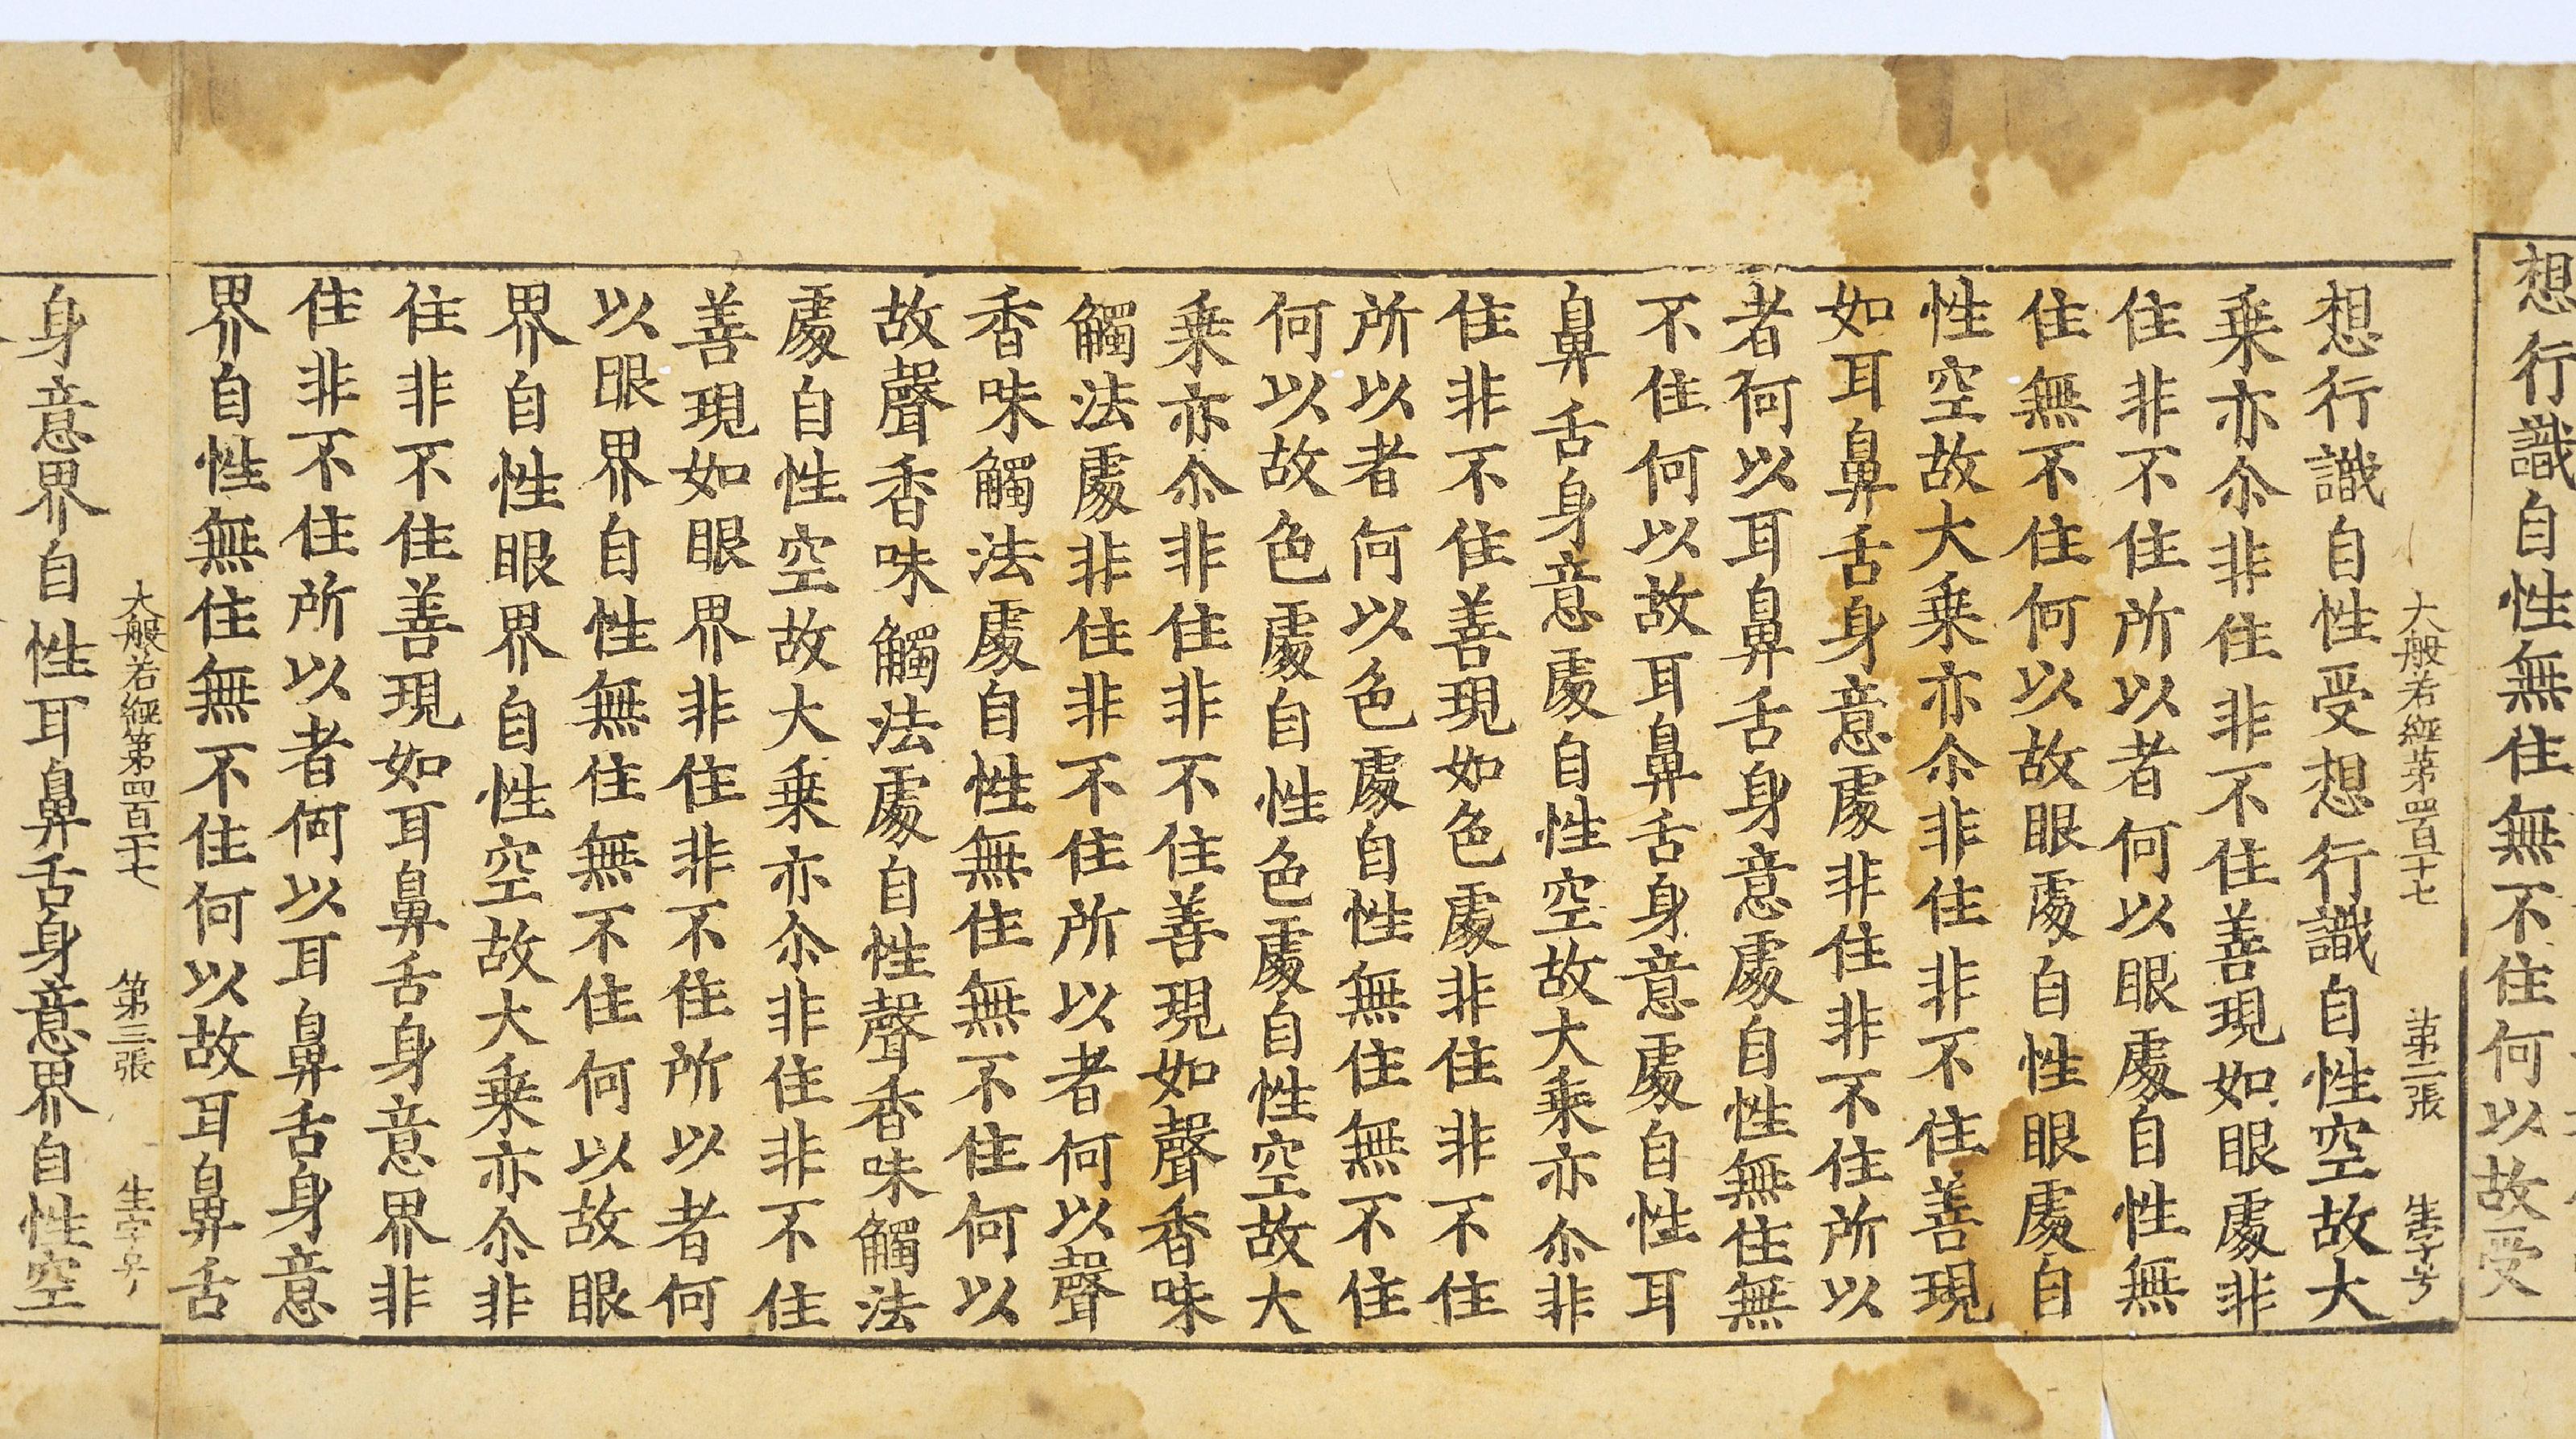 想行識自性無住無不住何以故受
大般若經第四百十七 第二張 生字号
想行識自性受想行識自性空故大
乗亦尒非住非不住善現如眼處非
住非不住所以者何以眼處自性無
住無不住何以故眼處自性眼處自
性空故大乗亦尒非住非不住善現
如耳鼻舌身意處非住非不住所以
者何以耳鼻舌身意處自性無住無
不住何以故耳鼻舌身意處自性耳
鼻舌身意處自性空故大乗亦尒非
住非不住善現如色處非住非不住
所以者何以色處自性無住無不住
何以故色處自性色處自性空故大
乗亦尒非住非不住善現如聲香味
觸法處非住非不住所以者何以聲
香味觸法處自性無住無不住何以
故聲香味觸法處自性聲香味觸法
處自性空故大乗亦尒非住非不住
善現如眼界非住非不住所以者何
以眼界自性無住無不住何以故眼
界自性眼界自性空故大乗亦尒非
住非不住善現如耳鼻舌身意界非
住非不住所以者何以耳鼻舌身意
界自性無住無不住何以故耳鼻舌
大般若經第四百十七 第三張 生字号
身意界自性耳鼻舌身意界自性空